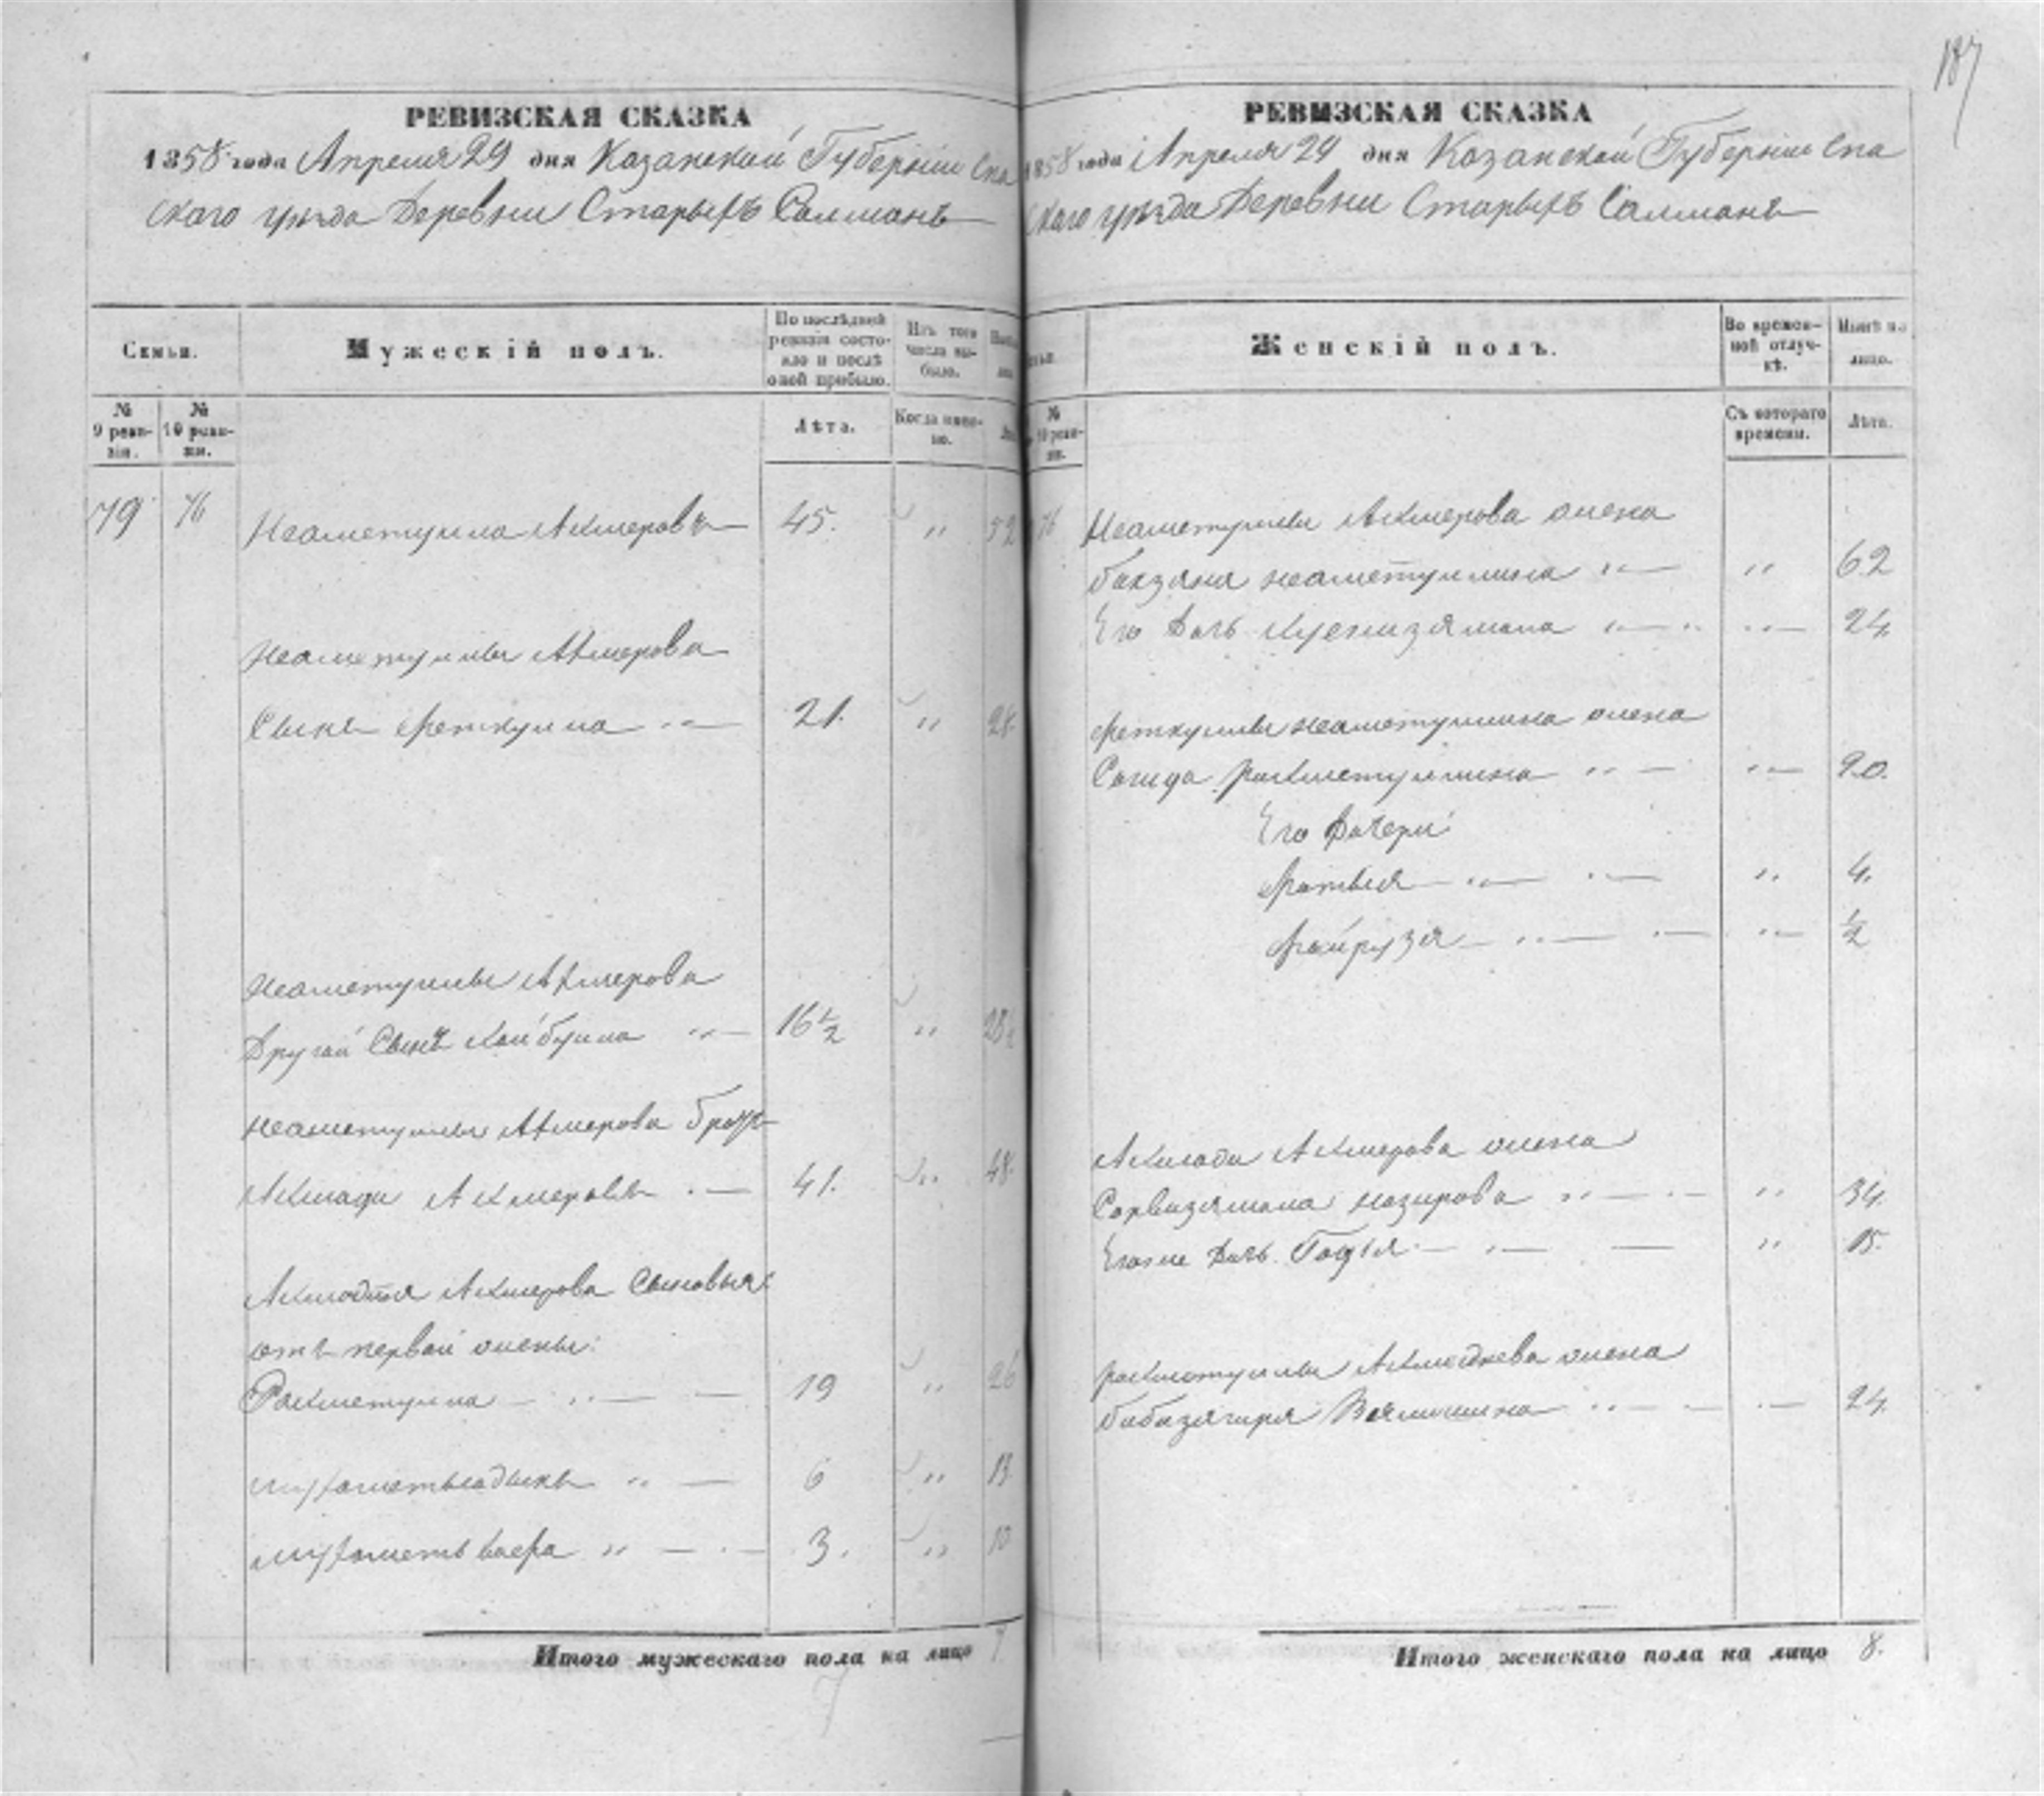 187
РЕВИЗСКАЯ СКАЗКА
1858 года Апреля 29 дня Казанской Губерніи Спа
скаго уѣзда Деревни Старыхъ Салманъ
Семьи.
Мужескій полъ.
По послѣдней ревизіи состояло и послѣ оной прибыло.
Изъ того числа выбыло.
№ 9 ревизіи.
№ 10 ревизіи.
Лѣта.
Когда именно.
79 76 Неаметулла Акмеровъ 45. " 52
Неаметуллы Акмерова
Сынъ Феткулла 21. " 28.
Неаметуллы Акмерова
Другой Сынъ Хайбулла 16½ "
Неаметуллы Акмерова братъ
Ахмади Акмеровъ 41. " 48.
Акмерова Сыновья:
отъ первой жены:
Рахметулла 19 " 26
Мухаметьсадыкъ 6 " 13.
Мухаметь 3. " 10
Итого мужескаго пола на лицо 7
7
РЕВИЗСКАЯ СКАЗКА
1858 года Апреля 29 дня Казанской Губерніи Спа
скаго уѣзда Деревни Старыхъ Салманъ
Женскій полъ.
Во временной отлучкѣ.
Нынѣ на лицо.
№ 10 ревизіи.
Съ котораго времени.
Лѣта.
76 Неаметуллы Акмерова жена
неаметуллина " 62
Его дочь 24.
Феткуллы неаметуллина жена
Сагида рахметуллина 20.
Его дочери
Фатыя " 4.
Файрузя ½
Ахмади Акмерова жена
назирова " 34.
Егоже дочь " 15.
рахметуллы жена
24.
Итого женскаго пола на лицо 8.